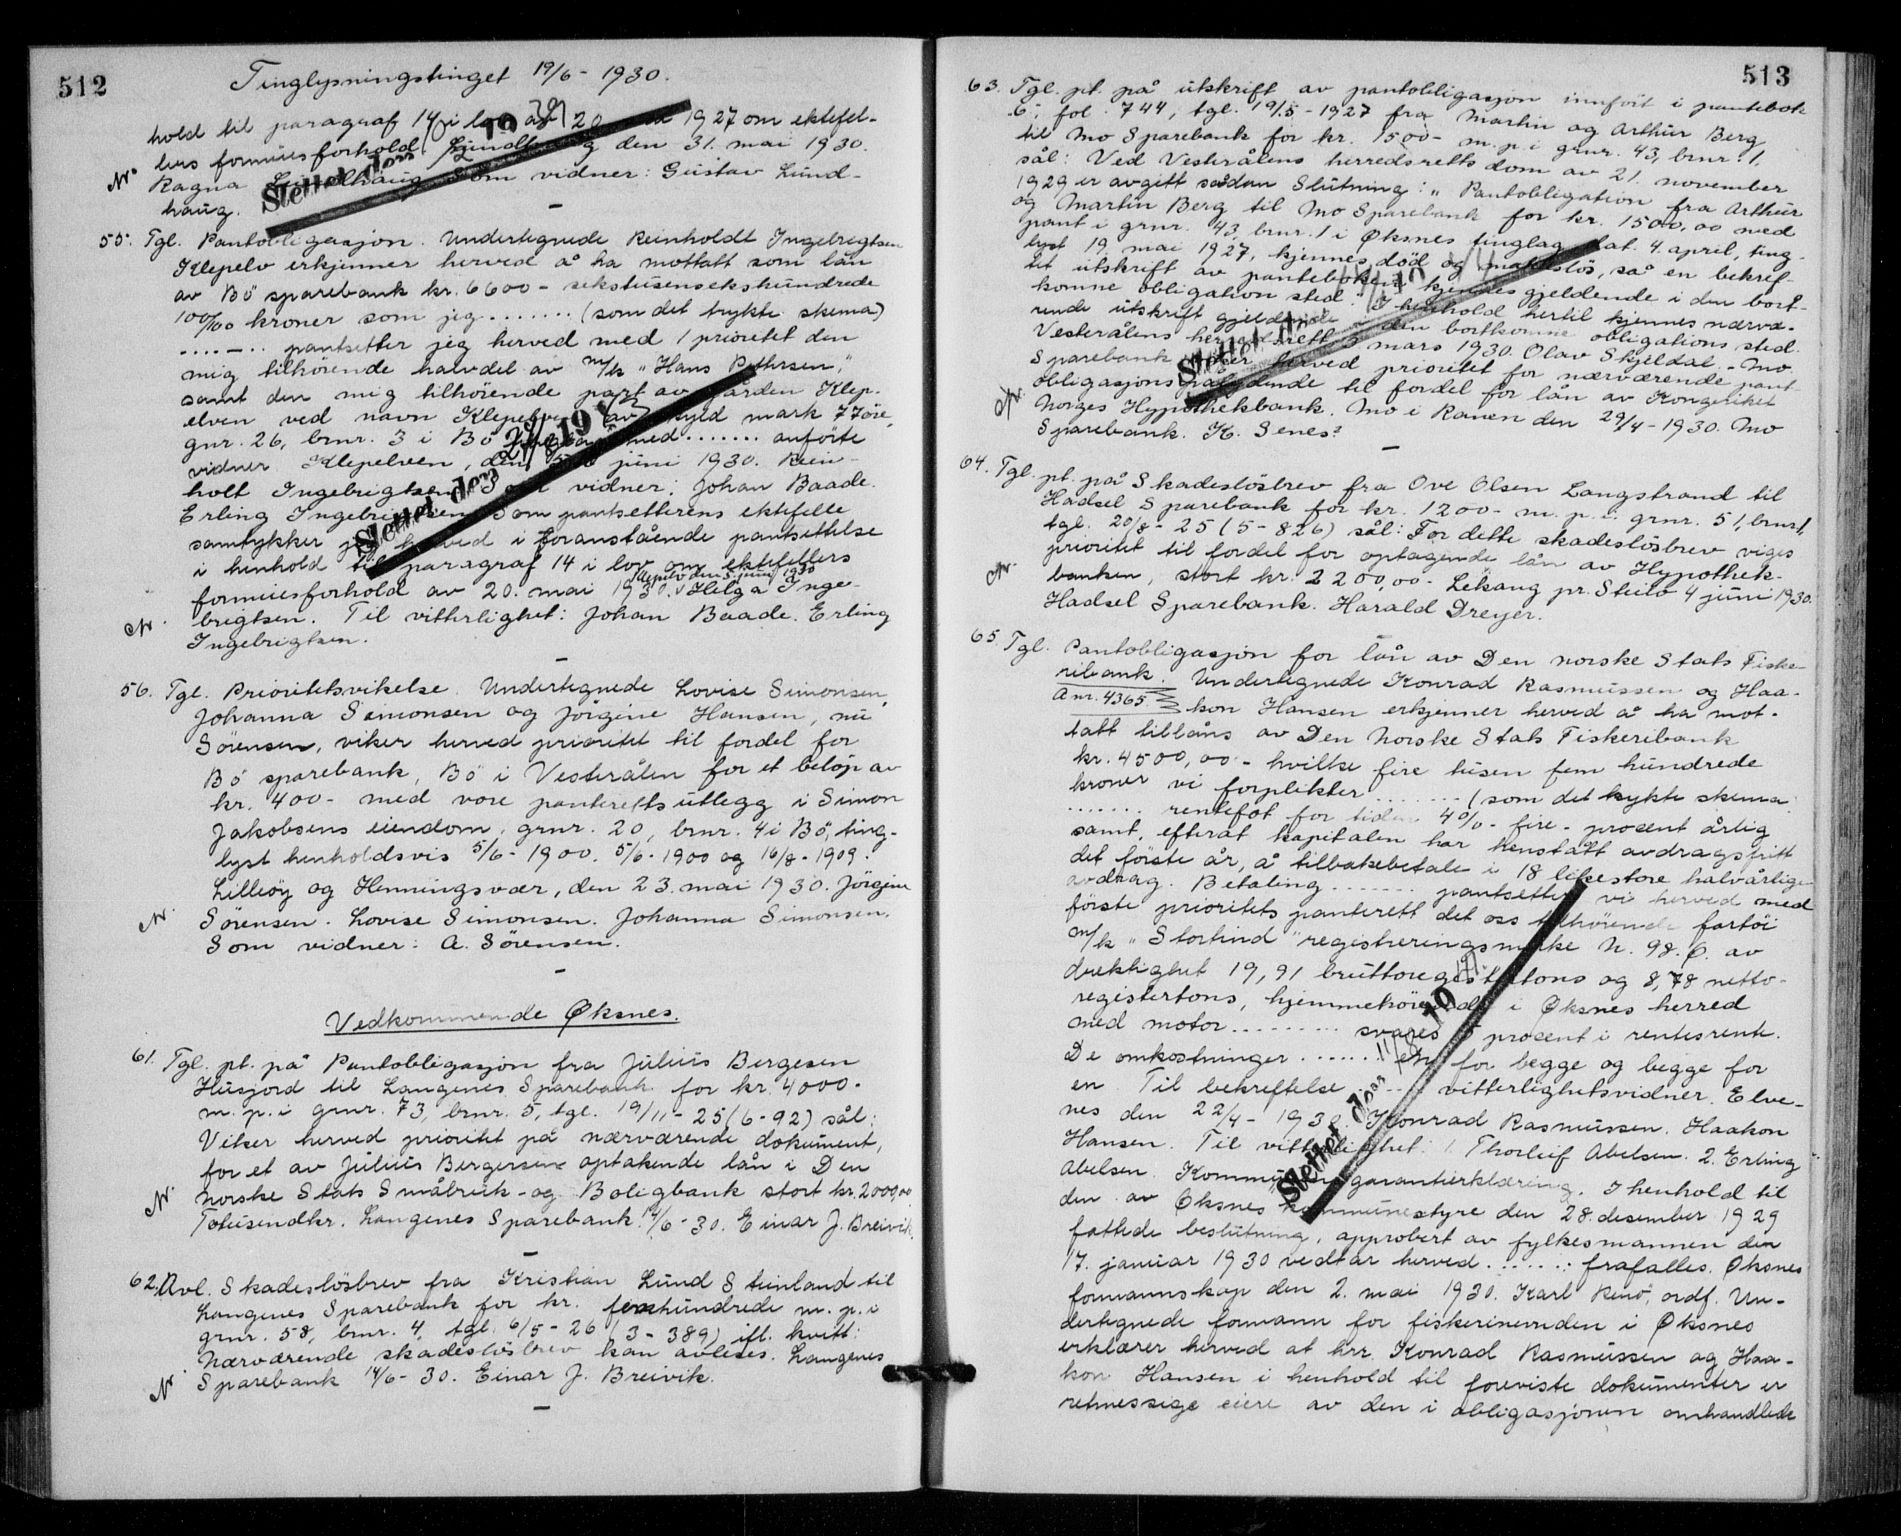 512
Tinglysningstinget 19/6 - 1930.
hold til paragraf 14 i lov av 20. 1927 om ektefel-
lers formuesforhold. den 31. mai 1930.
Ragna Som vidner: Gustav Lund-
haug.
55. Tgl. Pantobligasjon. Undertegnede Reinholdt Ingebrigtsen
Klepelv erkjenner herved å ha mottatt som lån
av Bö sparebank kr. 6600 - sekstusensekshundrede
100/100 kroner som jeg ........ (som det trykte skema)
....-.. pantsetter jeg herved med 1 prioritet den
mig tilhörende halvdel av m/k "Hans Pettersen",
samt den mig tilhörende part av gården Klep-
elven ved navn Klepelven av skyld mark 77 öre,
gnr. 26, brnr. 3 i Bö med ....... anförte
vidner Klepelven, den juni 1930. Rein-
holt Ingebrigtsen. Som vidner: Johan Baade.
Erling Ingebrigtsen. Som pantsetterens ektefelle
samtykker jeg herved i foranstående pantsettelse
i henhold til paragraf 14 i lov om ektefellers
Klepelv den 5 juni 1930
formuesforhold av 20. mai 1930. Helga Inge-
brigtsen. Til vitterlighet: Johan Baade. Erling
Ingebrigtsen.
56. Tgl. Prioritetsvikelse. Undertegnede Lovise Simonsen,
Johanna Simonsen og Jörgine Hansen, nu
Sörensen, viker herved prioritet til fordel for
Bö sparebank, Bö i Vesterålen for et belöp av
kr. 400 - med vore panterettsutlegg i Simon
Jakobsens eiendom, grnr. 20, brnr. 4 i Bö, ting-
lyst henholdsvis 5/6 - 1900. 5/6 - 1900 og 16/8 - 1909.
Lilleöy og Henningsvær, den 23. mai 1930. Jörgine
Sörensen. Lovise Simonsen. Johanna Simonsen.
Som vidner: A. Sörensen.
Vedkommende Øksnes.
61. Tgl. pt. på Pantobligasjon fra Julius Bergesen
Husjord til Langenes Sparebank for kr. 4000.
m. p. i grnr. 73, brnr. 5, tgl. 19/11 - 25 (6 - 92) sål:
Viker herved prioritet på nærværende dokument,
for et av Julius Bergersen optakende lån i Den
Norske Stats Småbruk- og Boligbank stort kr. 2000,00
Totusendkr. Langenes Sparebank 14/6 - 30. Einar J. Breivik.
62. Avl. Skadeslösbrev fra Kristian Lund Steinland til
Langenes Sparebank for kr. femhundrede m. p. i
grnr. 58, brnr. 4, tgl. 6/5 - 26 (3 - 389) ifl. kvitt:
Nærværende skadeslösbrev kan avleses. Langenes
Sparebank 14/6 - 30. Einar J. Breivik.
Slettet den
Slettet den
513
63. Tgl. pt. på utskrift av pantobligasjon innfört i pantebok
6, fol. 744, tgl. 19/5 - 1927 fra Martin og Arthur Berg
til Mo Sparebank for kr. 1500 - m. p. i grnr. 43, brnr. 1,
sål: Ved Vesterålens herredsretts dom av 21. november
1929 er avgitt sådan Slutning: "Pantobligation fra Arthur
og Martin Berg til Mo Sparebank for kr. 1500,00 med
pant i grnr. 43 brnr. 1 i Øksnes tinglag, dat. 4. april, ting-
lyst 19 mai 1927, kjennes död og makteslös, så en bekref-
tet utskrift av panteboken kjendes gjeldende i den bort-
komne obligation sted". I henhold hertil kjennes nærvæ-
rende utskrift gjeldende i den bortkomne obligations sted.
Vesterålens herredsrett mars 1930. Olav Skjeldal. - Mo
Sparebank viker herved prioritet for nærværende pant
obligasjons pålydende til fordel for lån av Kongeriket
Norges Hypothekbank. Mo i Ranen den 29/4 - 1930. Mo
Sparebank. K. Senes?
64. Tgl. pt. på Skadeslösbrev fra Ove Olsen Langstrand til
Hadsel Sparebank for kr. 1200 - m. p. i grnr. 51, brnr. 1,
tgl. 20/8 - 25 (5 - 826) sål: For dette skadeslösbrev viges
prioritet til fordel for optagende lån av Hypothek-
banken, stort kr. 2200,00 - Leksang pr. Steilo 4 juni 1930.
Hadsel Sparebank. Harald Dreyer.
65. Tgl. Pantobligasjon for lån av Den norske Stats Fiske-
ribank. Undertegnede Konrad Rasmussen og Haa-
A nr. 4365 kon Hansen erkjenner herved å ha mot-
tatt tillåns av Den Norske Stats Fiskeribank
kr. 4500,00 - hvilke fire tusen fem hundrede
kroner vi forplikter ........ (som det trykte skema
....... rentefot for tiden 4% - fire - procent årlig
samt, efterat kapitalen har henstått avdragsfritt
det förste år, å tilbakebetale i 18 likestore halvårlige
avdrag. Betaling ....... pantsetter vi herved med
förste prioritets panterett det oss tilhörende fartöi
m/k "Stortind" registreringsmerke N. 98. Ö. av
drektighet 19,91 bruttoregistertons og 8,78 netto-
registertons, hjemmehörende i Øksnes herred
med motor ......... svares procent i rentesrente.
De omkostninger ....... en for begge og begge for
en. Til bekreftelse ...... vitterlighetsvidner. Elve-
nes den 22/4 - 1930. Konrad Rasmussen. Haakon
Hansen. Til vitterlighet: 1. Thorleif Abelsen. 2. Erling
Abelsen. Kommunegarantierklæring. I henhold til
den av Øksnes kommunestyre den 28. desember 1929
fattede beslutning, approbert av fylkesmannen den
17. januar 1930 vedtar herved ......: frafalles. Øksnes
formannskap den 2. mai 1930. Karl Reinö, ordf. Un-
dertegnede formann for fiskerinemden i Øksnes
erklærer herved at hrr. Konrad Rasmussen og Haa-
kon Hansen i henhold til foreviste dokumenter er
retmessige eiere av den i obligasjonen omhandlede
Slettet den
Slettet den